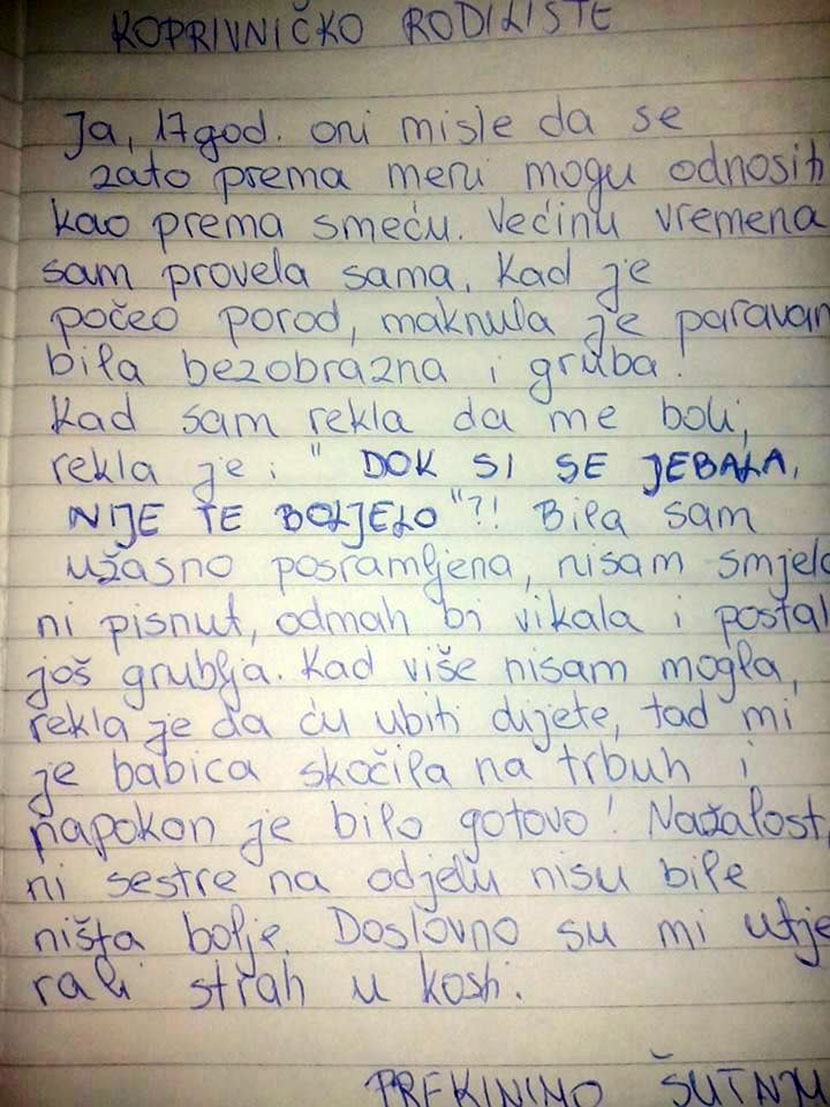 KOPRIVNIČKO RODILIŠTE
Ja, 17 god. oni misle da se
zato prema meni mogu odnositi
kao prema smeću. Većinu vremena
sam provela sama. Kad je
počeo porod, maknula je paravan
bila bezobrazna i gruba.
Kad sam rekla da me boli,
rekla je: "DOK SI SE JEBALA,
NIJE TE BOLJELO"?! Bila sam
užasno posramljena, nisam smjela
ni pisnut, odmah bi vikala i postal
još grublja. Kad više nisam mogla,
rekla je da ću ubiti dijete, tad mi
je babica skočila na trbuh i
napokon je bilo gotovo! Nažalost,
ni sestre na odjelu nisu bile
ništa bolje. Doslovno su mi utje
rali strah u kosti.
PREKINIMO ŠUTNJU